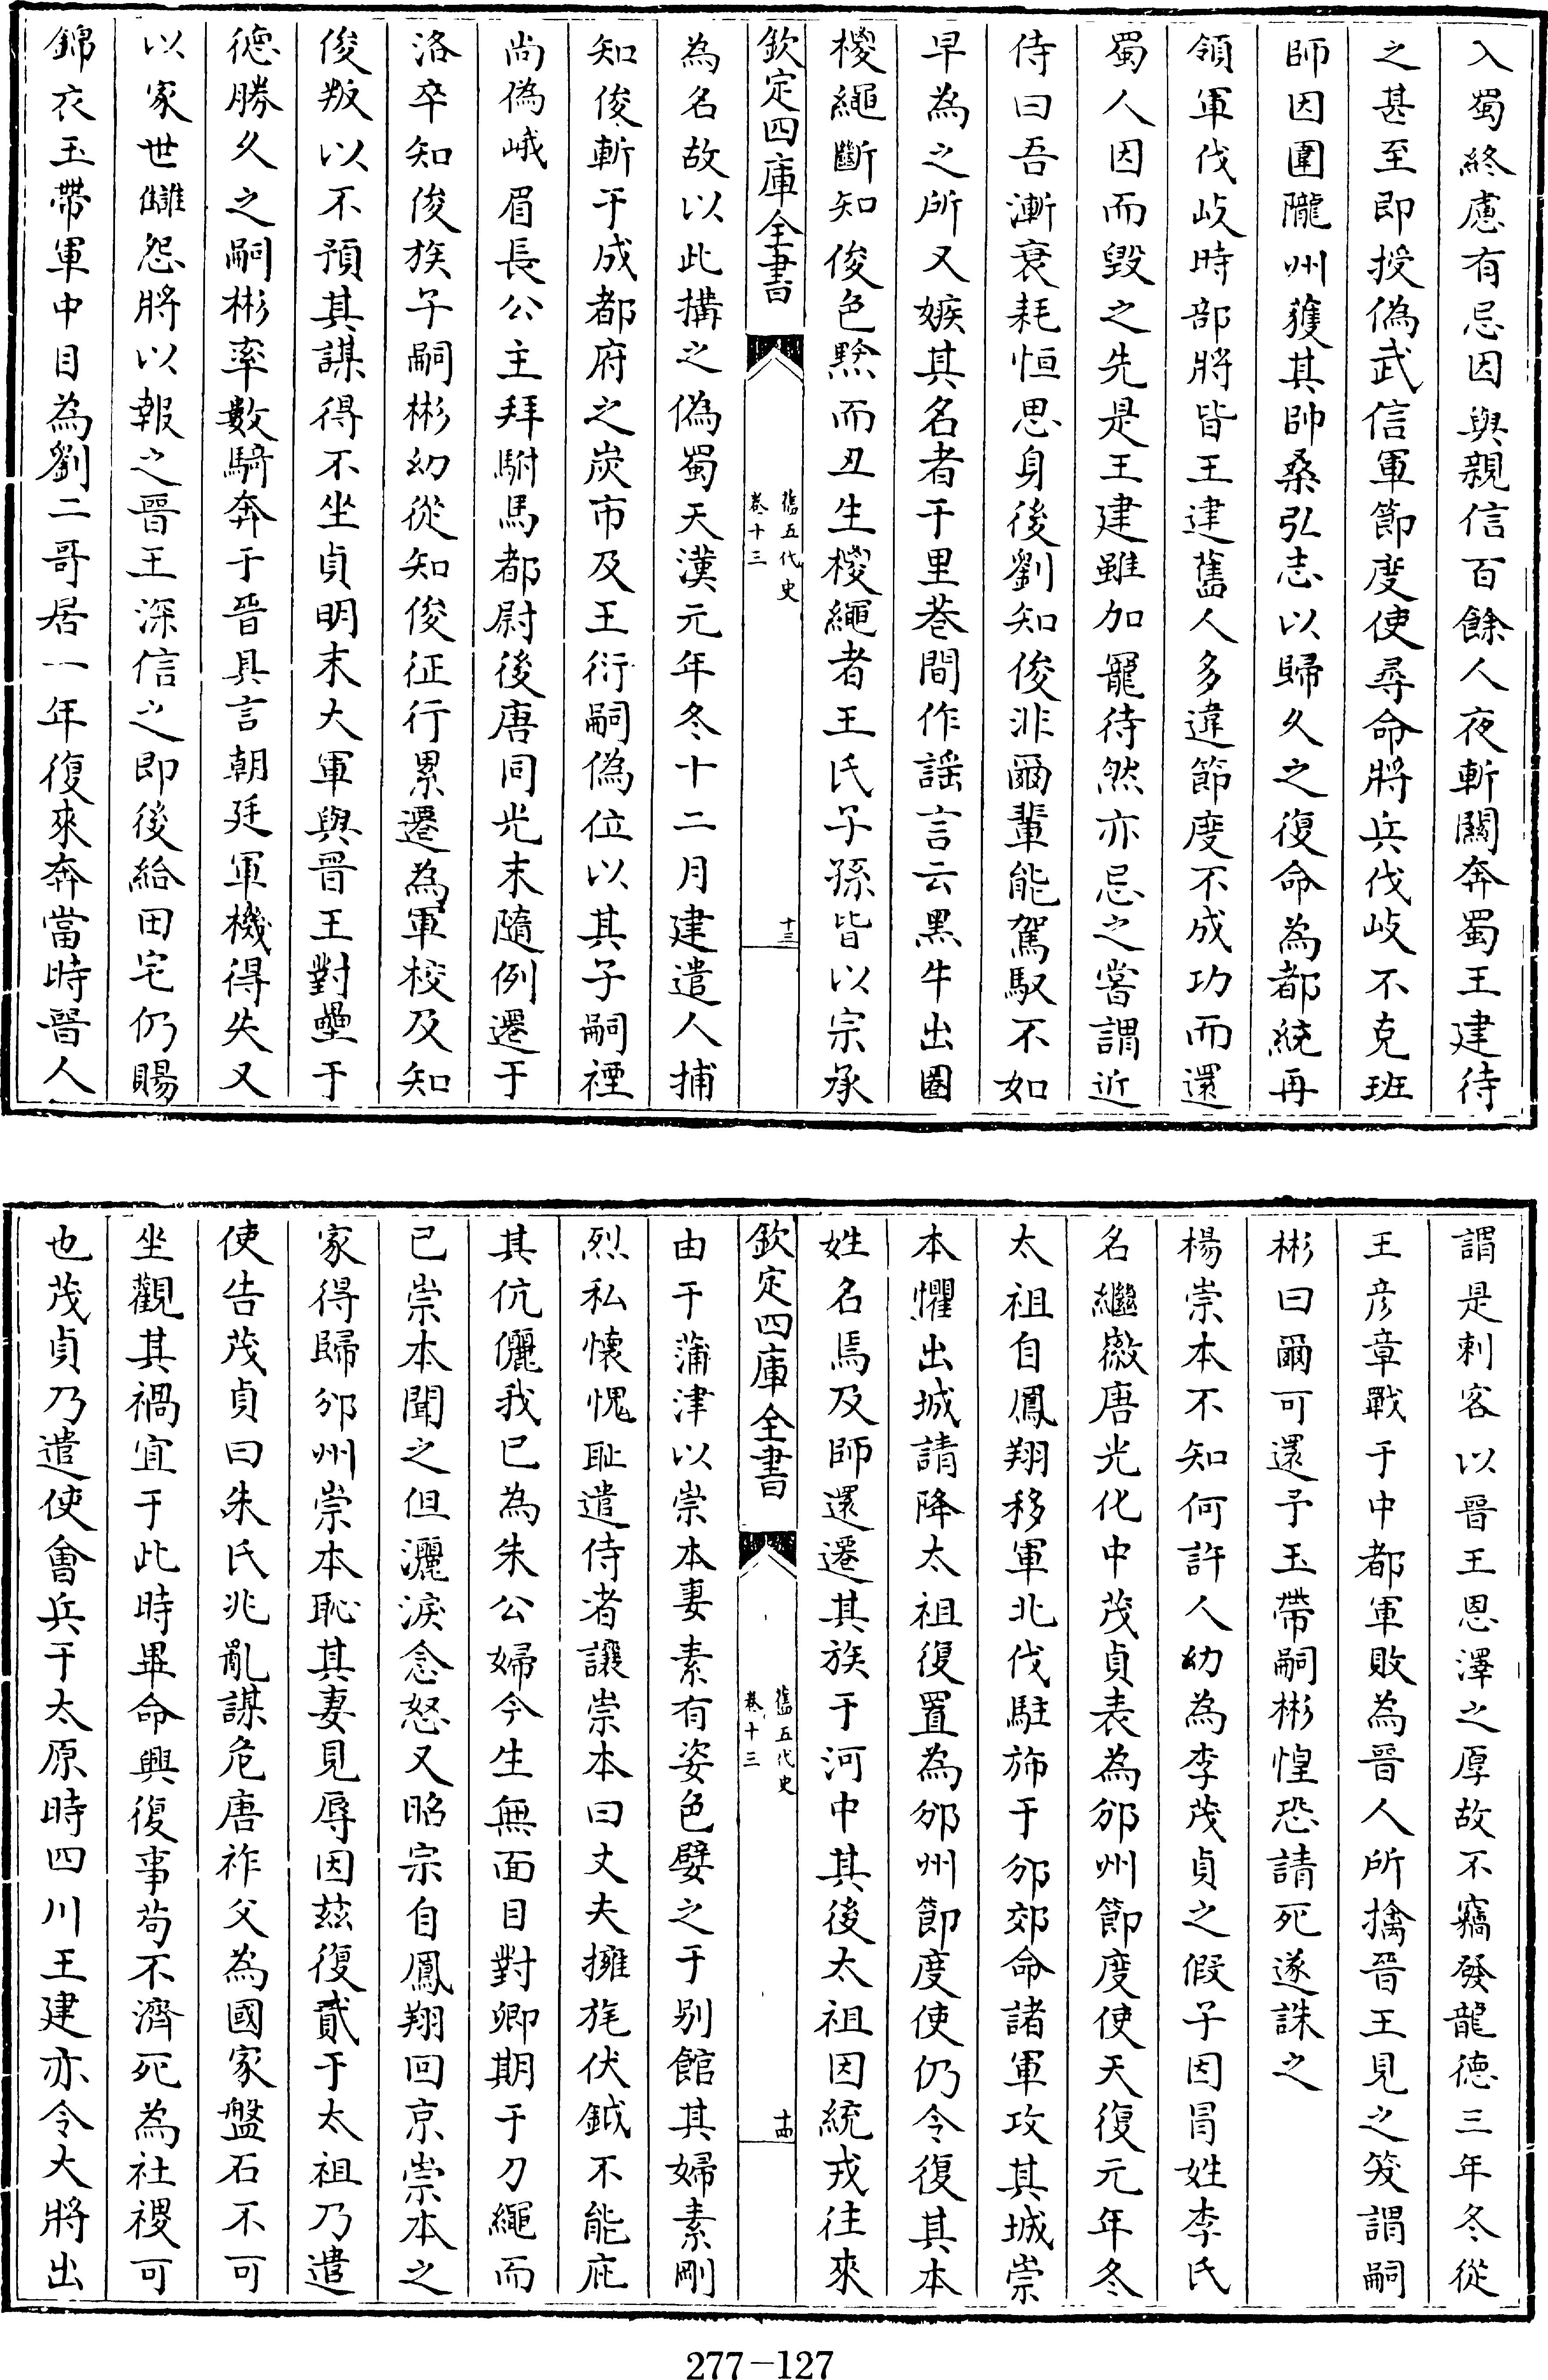 入蜀終慮有忌因與親信百餘人夜斬關奔蜀王建待
之甚至即授偽武信軍節度使尋命將兵伐岐不克班
師因圍隴州獲其帥桑弘志以歸久之復命為都統再
領軍伐岐時部將皆王建舊人多違節度不成功而還
蜀人因而毀之先是王建雖加寵待然亦忌之嘗謂近
侍曰吾漸衰耗恒思身後劉知俊非爾輩能駕馭不如
早為之所又嫉其名者于里巷間作謡言云黑牛出圈
椶繩斷知俊色黔而丑生椶繩者王氏子孫皆以宗承
欽定四庫全書
舊五代史
卷十三
十三
為名故以此搆之偽蜀天漢元年冬十二月建遣人捕
知俊斬于成都府之炭市及王衍嗣偽位以其子嗣禋
尚偽峨眉長公主拜駙馬都尉後唐同光末隨例遷于
洛卒知俊族子嗣彬幼從知俊征行累遷為軍校及知
俊叛以不預其謀得不坐貞明末大軍與晉王對壘于
徳勝久之嗣彬率數騎奔于晉具言朝廷軍機得失又
以家世讎怨將以報之晉王深信之即後給田宅仍賜
錦衣玉帶軍中目為劉二哥居一年復來奔當時晉人
謂是刺客以晉王恩澤之厚故不竊發龍徳三年冬從
王彦章戰于中都軍敗為晉人所擒晉王見之笑謂嗣
彬曰爾可還予玉帶嗣彬惶恐請死遂誅之
楊崇本不知何許人幼為李茂貞之假子因冒姓李氏
名繼徽唐光化中茂貞表為邠州節度使天復元年冬
太祖自鳳翔移軍北伐駐斾于邠郊命諸軍攻其城崇
本懼出城請降太祖復置為邠州節度使仍令復其本
姓名焉及師還遷其族于河中其後太祖因統戎往來
欽定四庫全書
舊五代史
卷十三
十四
由于蒲津以崇本妻素有姿色嬖之于别館其婦素剛
烈私懐愧耻遣侍者讓崇本曰丈夫擁旄伏鉞不能庇
其伉儷我已為朱公婦今生無面目對卿期于刀繩而
已崇本聞之但灑淚含怒又昭宗自鳳翔回京崇本之
家得歸邠州崇本恥其妻見辱因兹復貳于太祖乃遣
使告茂貞曰朱氏兆亂謀危唐祚父為國家盤石不可
坐觀其禍宜于此時畢命興復事茍不濟死為社稷可
也茂貞乃遣使㑹兵于太原時四川王建亦令大將出
277-127